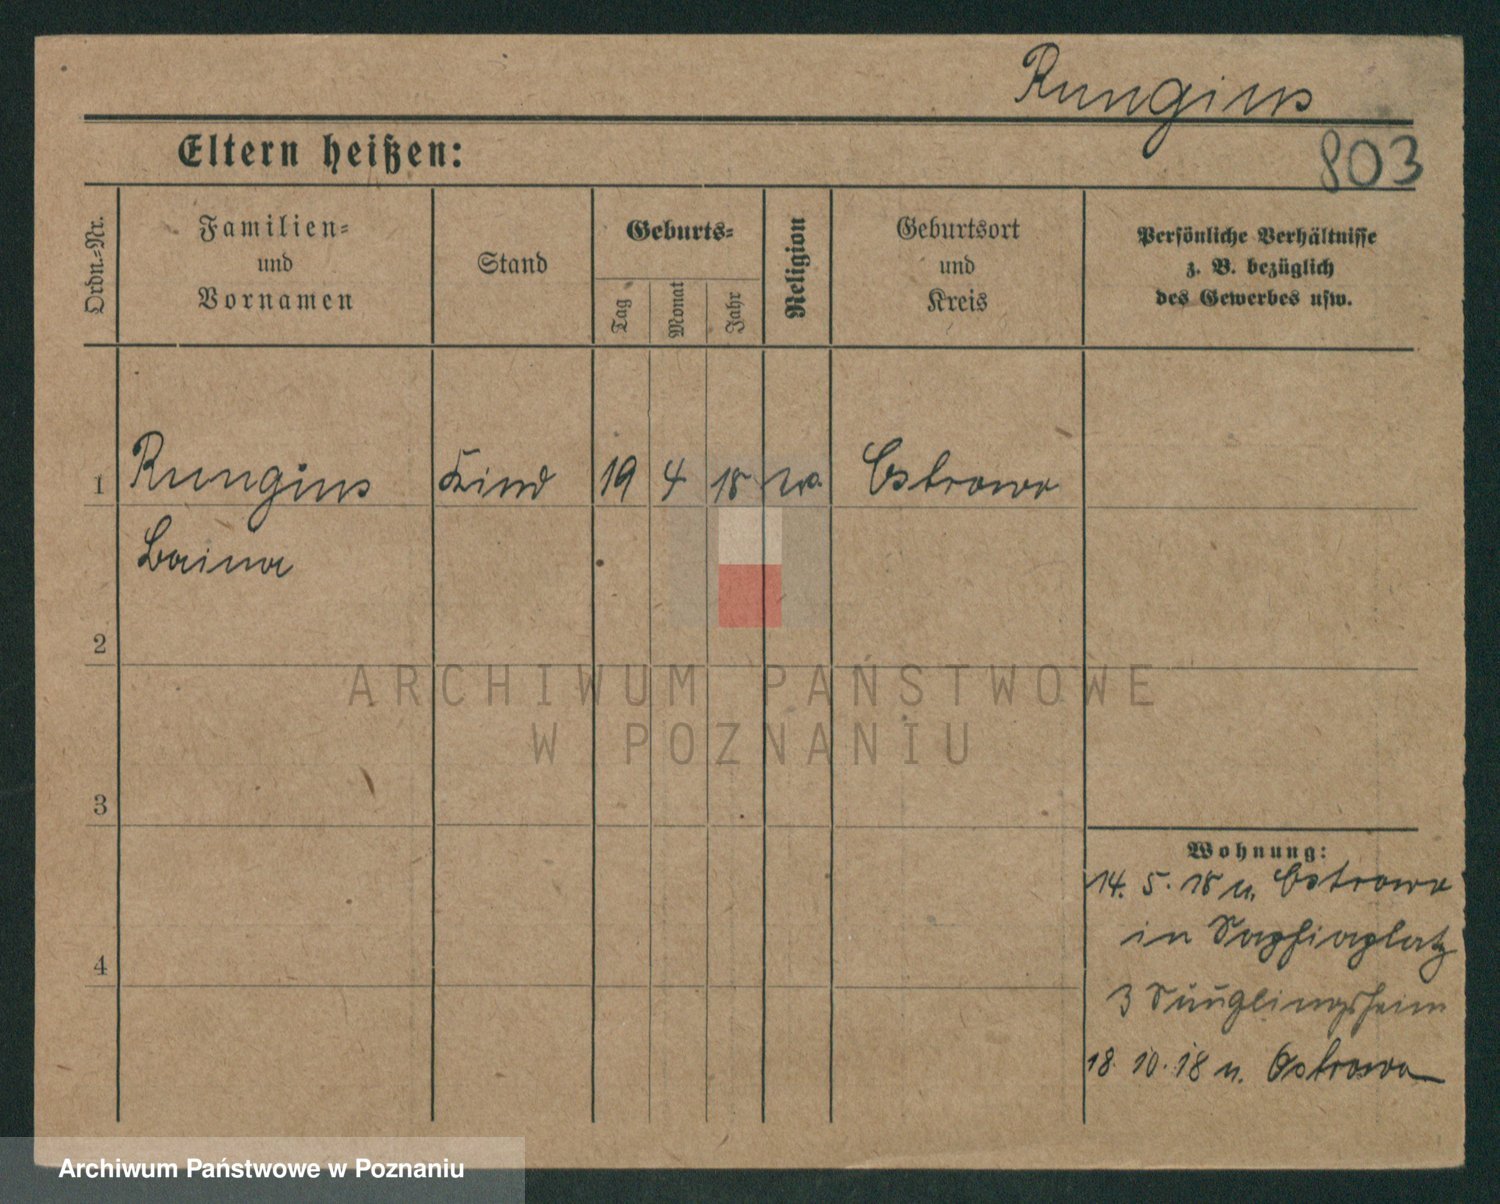 Rungius
803
Eltern heißen:
Ordn.-Nr.
Familien-
und
Vornamen
Stand
Geburts-
Tag
Monat
Jahr
Religion
Geburtsort
und
Kreis
Persönliche Verhältnisse
z. B. bezüglich
des Gewerbes usw.
1 Rungius Kind 19 4 18 Ostrowo
2
3
4
Wohnung:
14. 5. 18 v. Ostrowo
in
3 Säuglingsheim
18. 10. 18 n. Ostrowo
ARCHIWUM PAŃSTWOWE
W POZNANIU
Archiwum Państwowe w Poznaniu